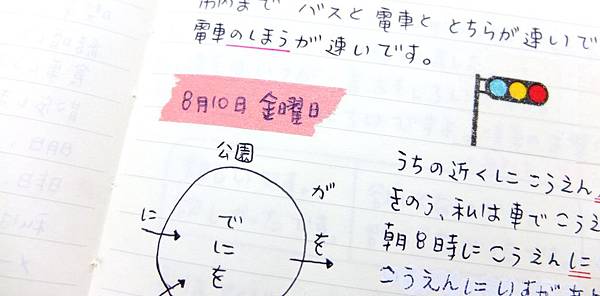 まで バスと電車と どちらが速いで
電車のほうが速いです。
8月10日 金曜日
公園
に
で
に
を
が
を
うちの近くに こうえん
きのう、私は車で こうえ
朝8時に こうえんに
こうえんに いすが